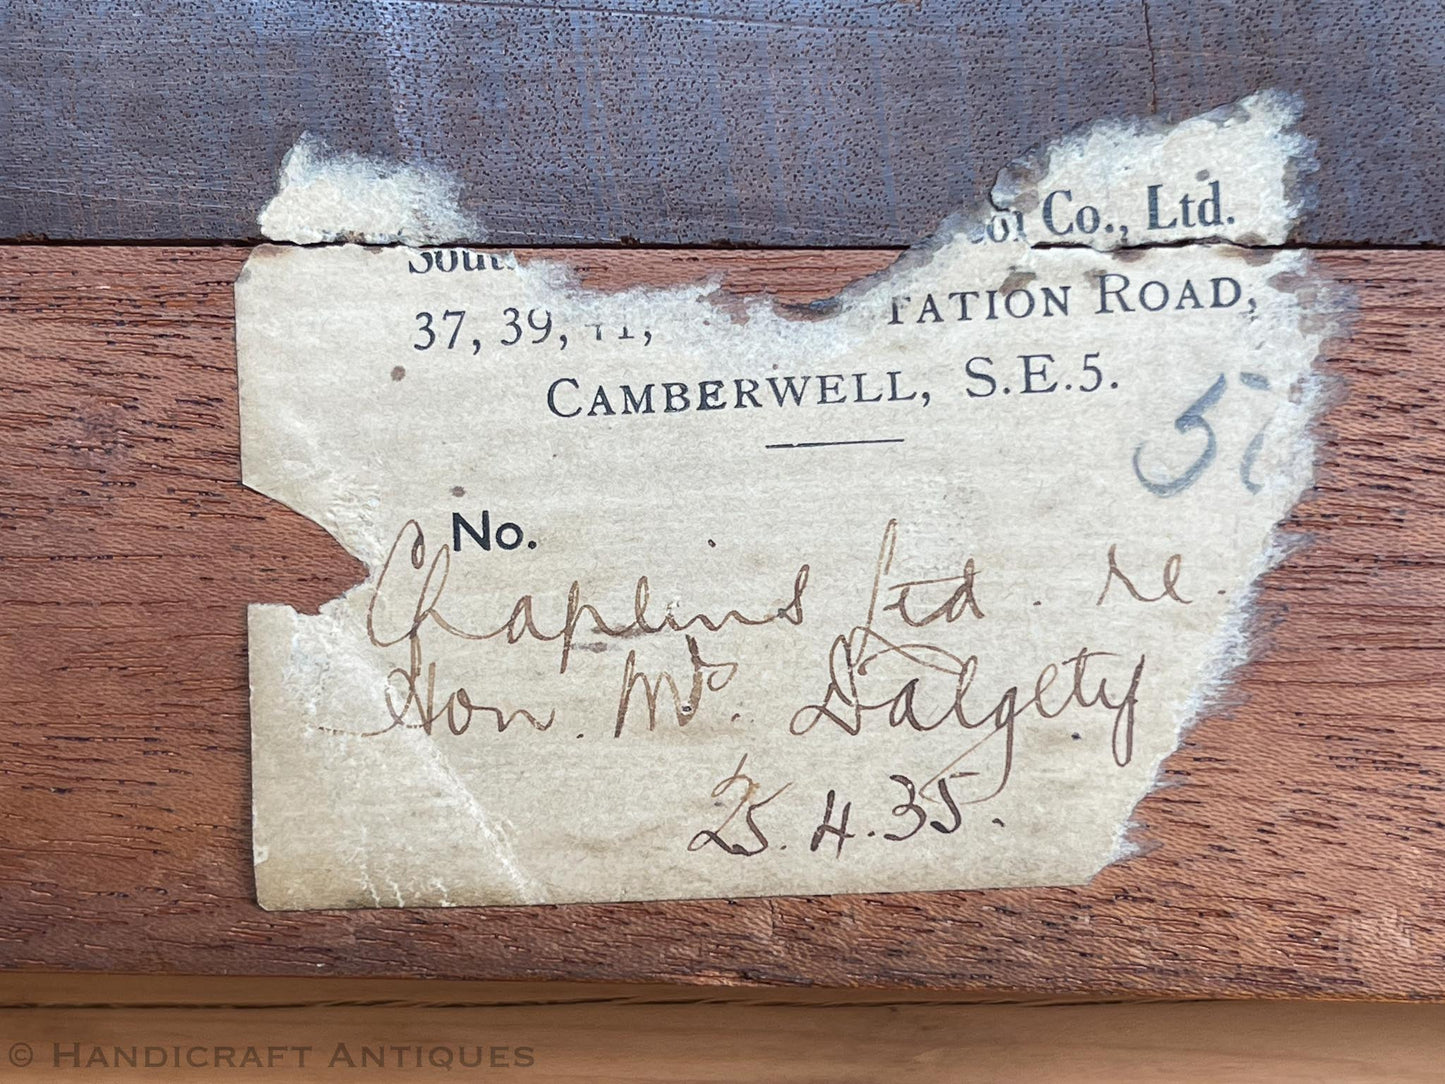 Co., Ltd.
37, 39, 41, STATION ROAD,
CAMBERWELL, S.E.5.
5
No.
Chaplins Ltd. re.
Hon. Mrs. Dalgety
25.4.35.
© HANDICRAFT ANTIQUES